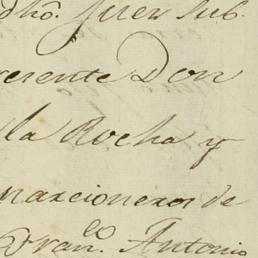 dho. Juez Sub.
resente Don
la Rocha y
narcioneros de
Franco. Antonio